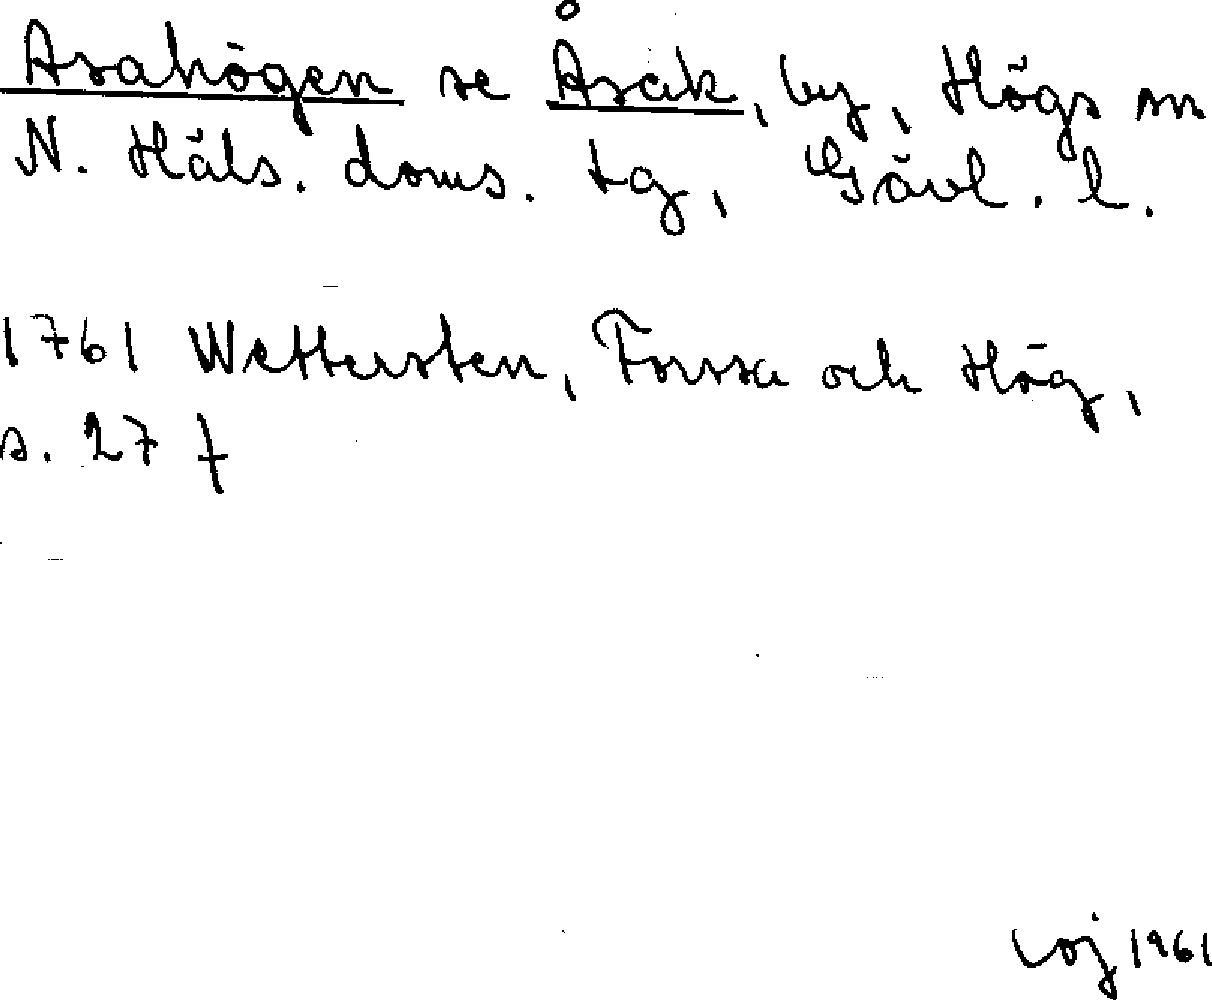 Asahögen se Åsak, by, Högs sn
N. Häls. doms. tg, Gävl. l.
1761 Wettersten, Forssa och Hög,
s. 27 f
1961